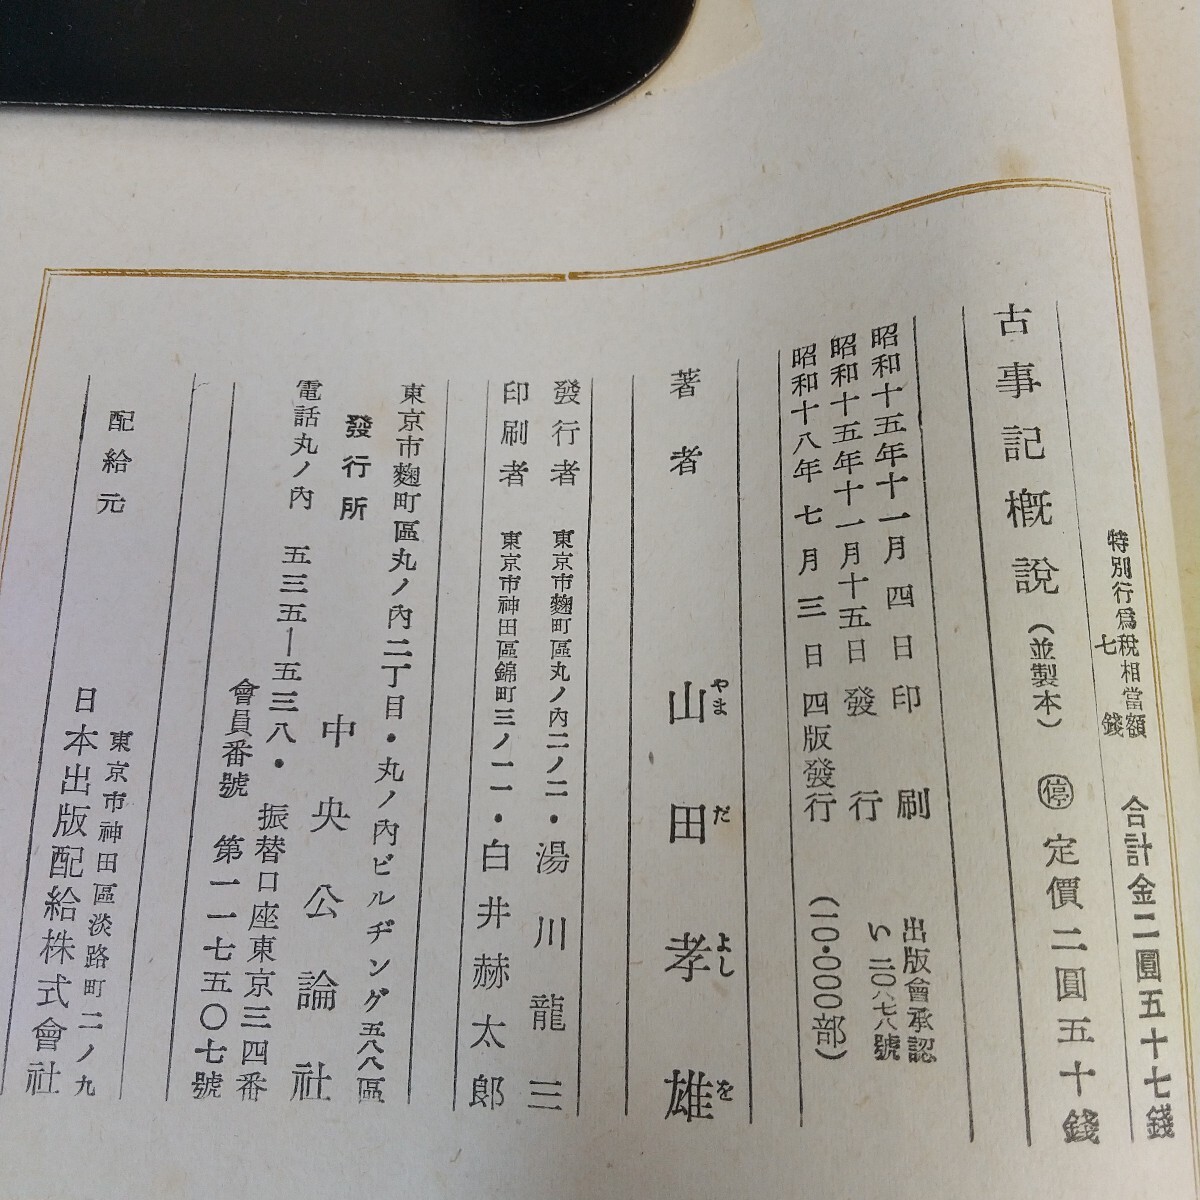 特別行爲稅相當額
七錢
合計金二圓五十七錢
古事記概說（並製本）
停 定價二圓五十錢
昭和十五年十一月四日印刷
昭和十五年十一月十五日發行
昭和十八年七月三日四版發行
出版會承認
い二〇八七八號
（一〇・〇〇〇部）
著者 山田孝雄
やま だ よし を
發行者 東京市麴町區丸ノ內二ノ二・湯川龍三
印刷者 東京市神田區錦町三ノ一一・白井赫太郎
東京市麴町區丸ノ內二丁目・丸ノ內ビルヂング五八八區
發行所 中央公論社
電話丸ノ內 五三五一五三八・振替口座東京三四番
會員番號 第一一七五〇七號
配給元
東京市神田區淡路町二ノ九
日本出版配給株式會社